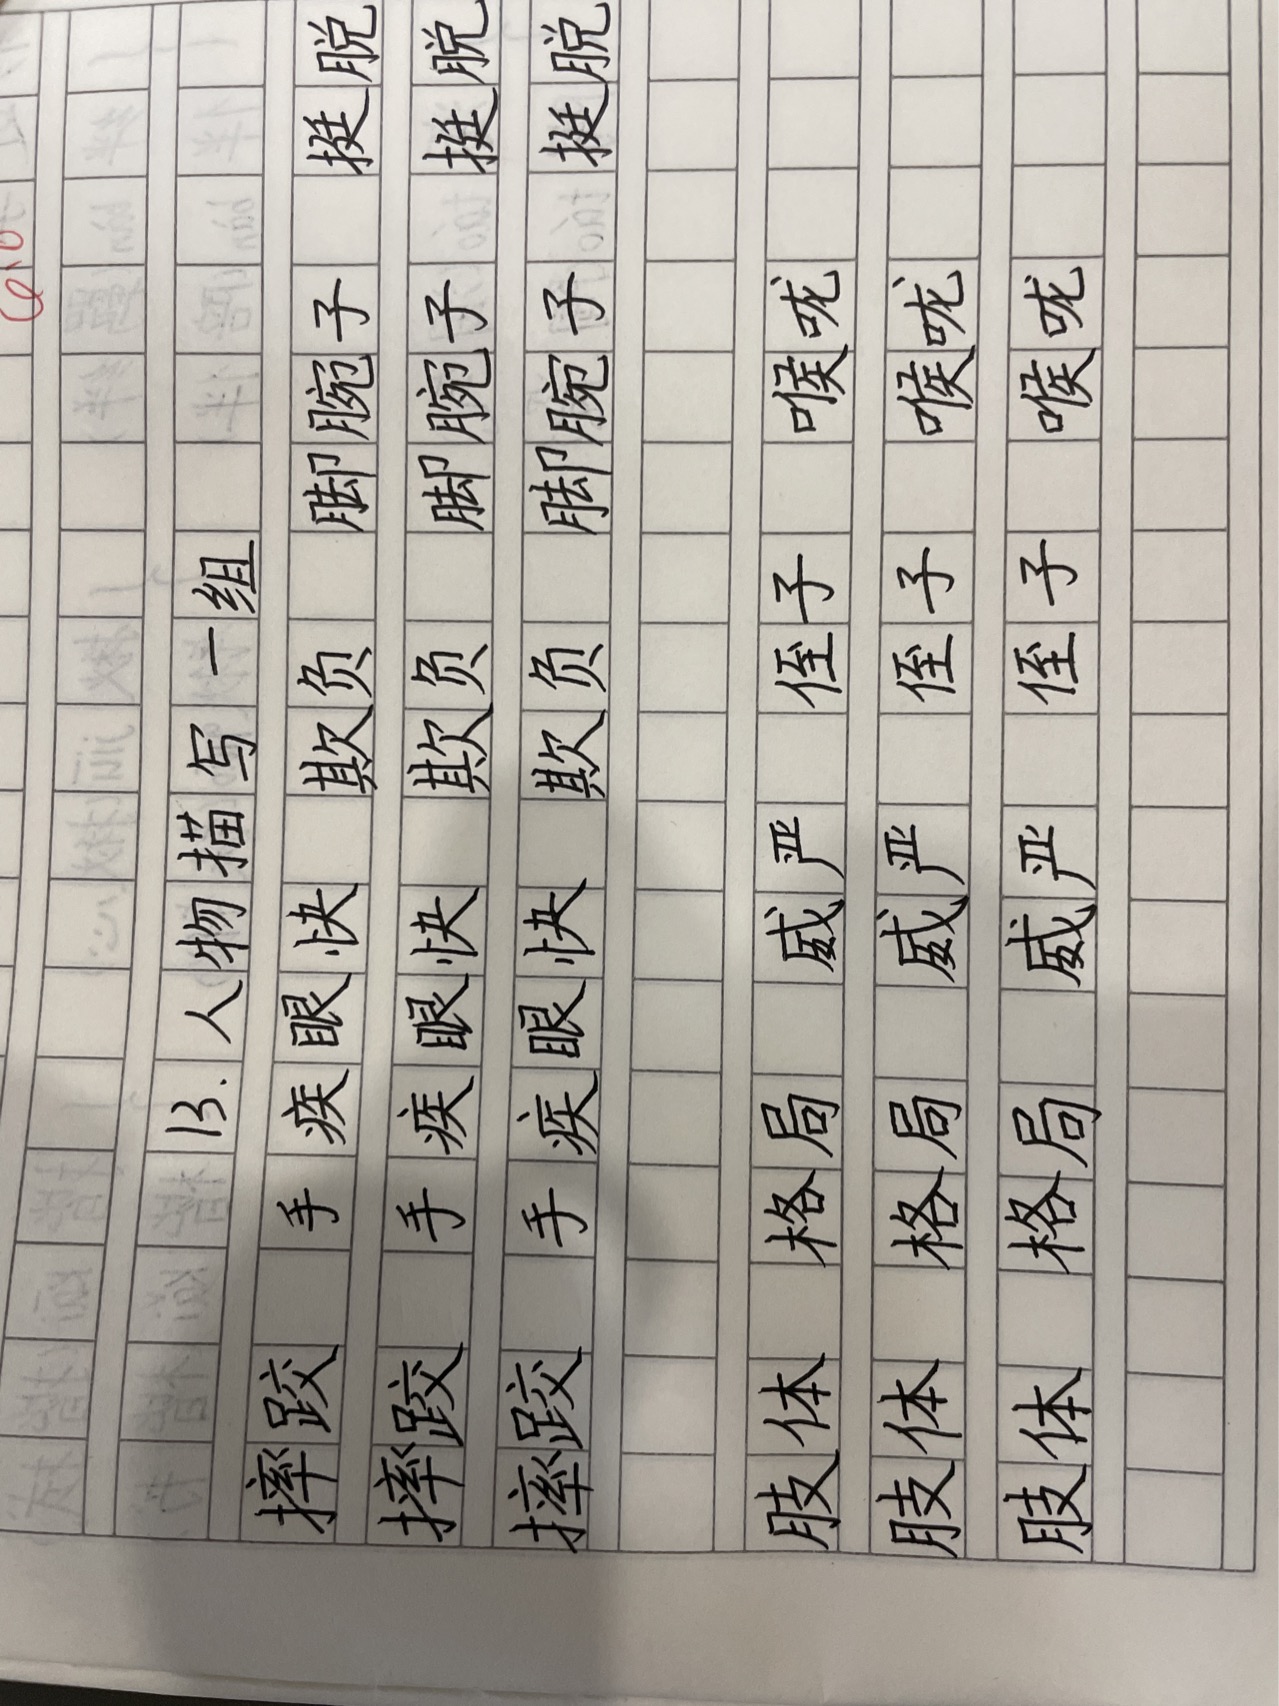 13. 人物描写一组
摔跤 手疾眼快 欺负 脚腕子 挺脱
摔跤 手疾眼快 欺负 脚腕子 挺脱
摔跤 手疾眼快 欺负 脚腕子 挺脱
肢体 格局 威严 侄子 喉咙
肢体 格局 威严 侄子 喉咙
肢体 格局 威严 侄子 喉咙